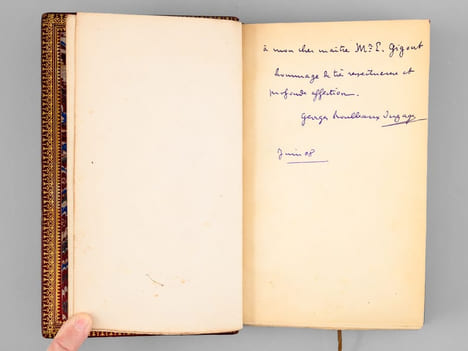 à mon cher maître Mr E. Gigout
hommage de très respectueuse et
profonde affection.
Georges Roulleaux Dugage
Juin 08